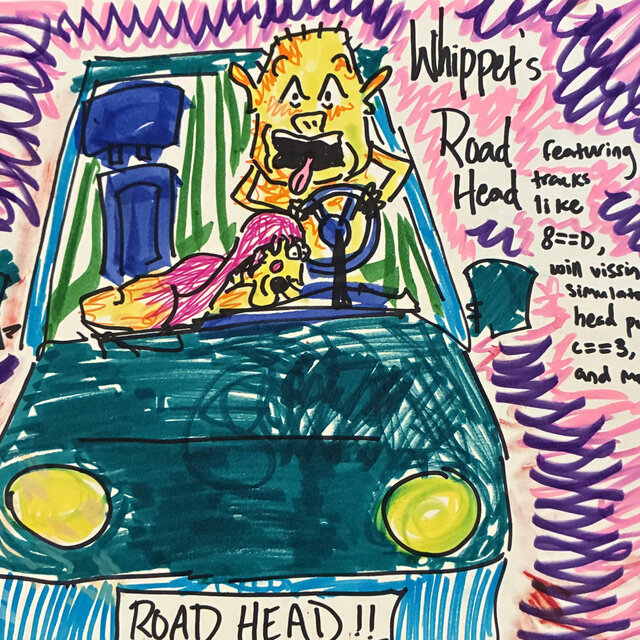 Whippet's
Road
Head
Featuring
tracks
like
8==D,
will vissin
simulat
head p
c==3,
and mo
ROAD HEAD!!